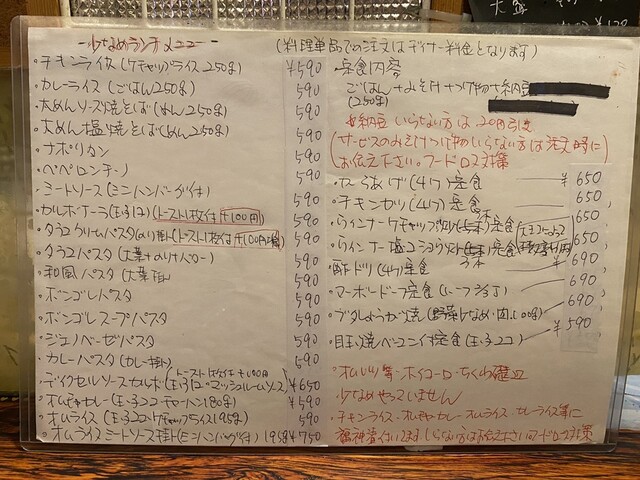 少なめランチメニュー
・チキンライス(ケチャップライス250g) ¥590
・カレーライス(ごはん250g) 590
・太めんソース焼そば(めん250g) 590
・太めん塩焼そば(めん250g) 590
・ナポリタン 590
・ペペロンチーノ 590
・ミートソース(ミニハンバーグ付) 590
・カルボナーラ(玉子1コ)(トースト1枚付+100円) 590
・タラコクリームパスタ(のり掛)(トースト1枚付+100円) 590
・タラコパスタ(大葉+のり+バター) 590
・和風パスタ(大葉 590
・ボンゴレパスタ 590
・ボンゴレスープパスタ 590
・ジェノベーゼパスタ 590
・カレーパスタ(カレー掛) 590
トースト1枚付+100円
・デイクセルソースカルボ(玉子1コ・マッシュルームソース) ¥650
・オムキーマカレー(玉子2コ・ 180g) ¥590
・オムライス(玉子2コ・ケチャップライス195g) 590
・オムライスミートソース掛(ミニハンバーグ付)195g ¥750
(料理単品での注文はディナー料金となります)
・定食内容
ごはん+みそ汁+つけ物+納豆
(250g)
納豆いらない方は20円引
(サービスのみそ汁つけ物いらない方は注文時に
お伝え下さい。フードロス対策
・から揚げ(4ケ)定食 ¥650
・チキンカツ(4ケ)定食 650
・ウインナーケチャップ炒 定食 650
・ウインナー塩コショウ炒 定食 650
・酢ドリ(4ケ)定食 690
・マーボードーフ定食 690
・ブタしょうが焼(野菜少なめ・肉100g) 690
・目玉焼ベーコン付定食(玉子2コ) ¥590
・オムレツ等・ホイコーロ・ちくわ
少なめやっていません
・チキンライス・オムキーマカレー・オムライス・カレーライス等に
福神漬付いてます。いらない方はお伝え下さい フードロス対策